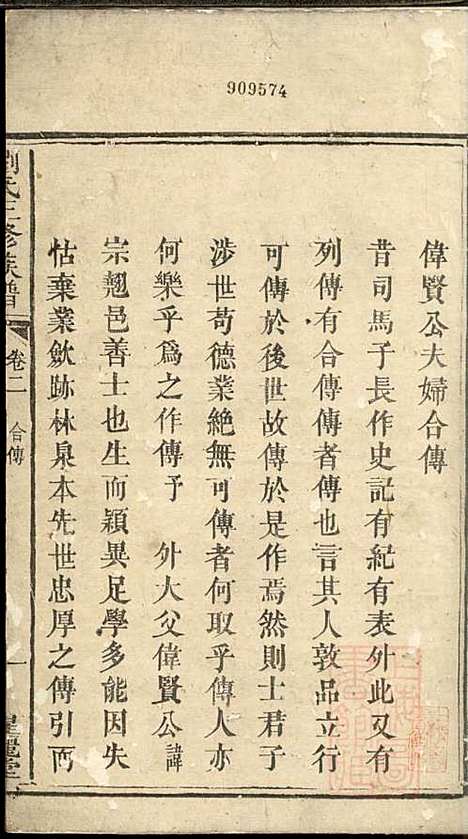 909574
偉賢公夫婦合傳
昔司馬子長作史記有紀有表外此又有
列傳有合傳傳者傳也言其人敦品立行
可傳於後世故傳於是作焉然則士君子
涉世苟德業絶無可傳者何取乎傳人亦
何樂乎爲之作傳予 外大父偉賢公諱
宗翹邑善士也生而穎異足學多能因失
怙棄業歛跡林泉本先世忠厚之傳引而
劉氏三修族譜 卷二 合傳 一